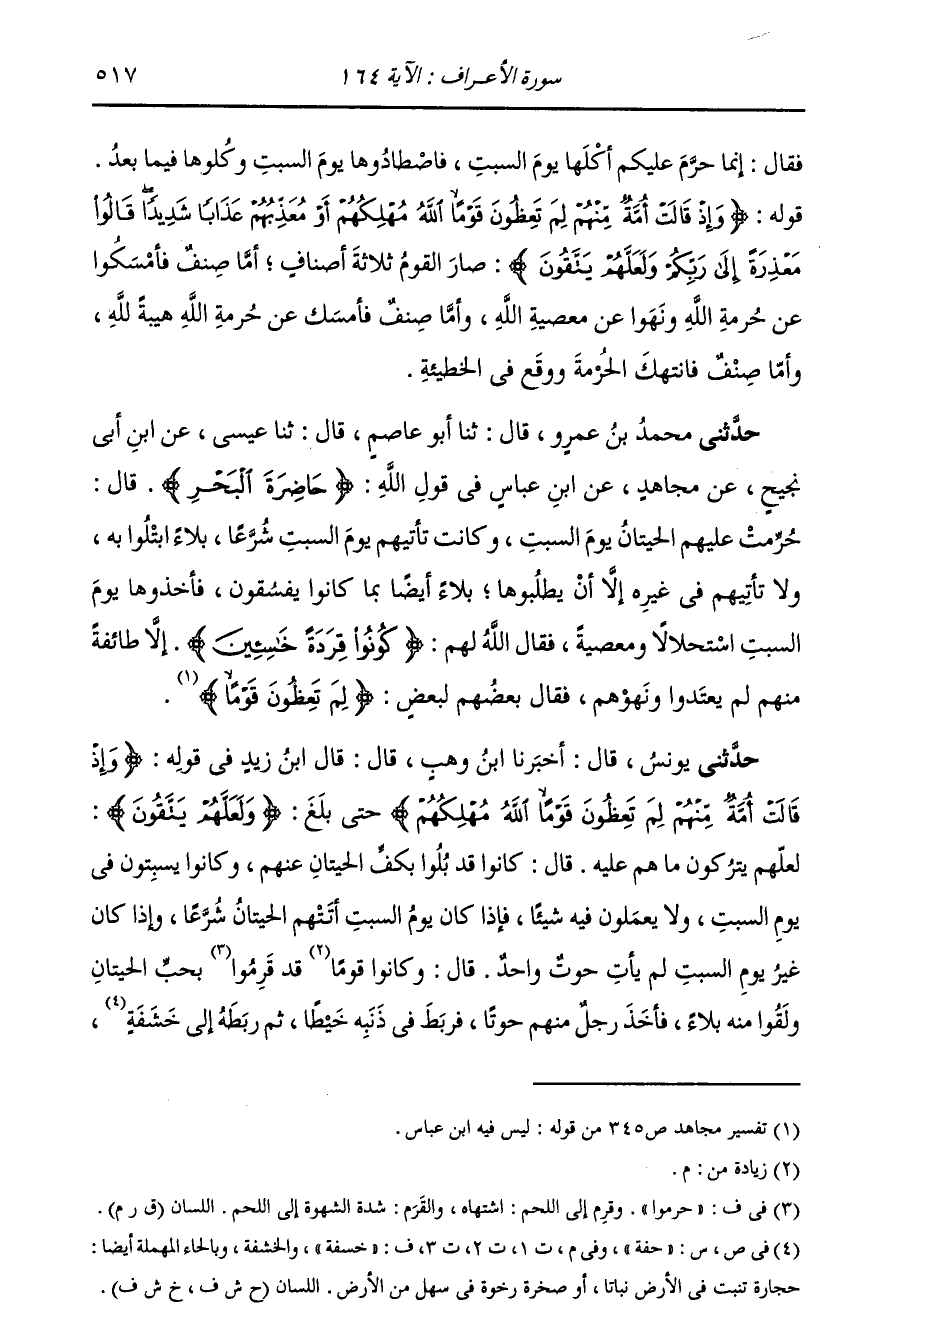 سورة الأعراف : الآية ١٦٤ ٥١٧
فقال : إنما حرَّمَ عليكم أكْلَها يومَ السبتِ ، فاصْطادُوها يومَ السبتِ وكُلوها فيما بعدُ .
قوله : ﴿ وَإِذْ قَالَتْ أُمَّةٌ مِّنْهُمْ لِمَ تَعِظُونَ قَوْمًا ۙ ٱللَّهُ مُهْلِكُهُمْ أَوْ مُعَذِّبُهُمْ عَذَابًا شَدِيدًا ۖ قَالُوا۟
مَعْذِرَةً إِلَىٰ رَبِّكُمْ وَلَعَلَّهُمْ يَتَّقُونَ ﴾ : صارَ القومُ ثلاثةَ أصنافٍ ؛ أمَّا صِنفٌ فأمْسَكُوا
عن حُرمةِ اللَّهِ ونَهَوا عن معصيةِ اللَّهِ ، وأمَّا صِنفٌ فأمسَك عن حُرمةِ اللَّهِ هيبةً للَّهِ ،
وأمّا صِنْفٌ فانتهكَ الحُرْمةَ ووقَع فى الخطيئةِ .
حدَّثنى محمدُ بنُ عمرٍو ، قال : ثنا أبو عاصمٍ ، قال : ثنا عيسى ، عن ابنِ أبى
نجيحٍ ، عن مجاهدٍ ، عن ابنِ عباسٍ فى قولِ اللَّهِ : ﴿ حَاضِرَةَ ٱلْبَحْرِ ﴾ . قال :
حُرِّمتْ عليهم الحيتانُ يومَ السبتِ ، وكانت تأتيهم يومَ السبتِ شُرَّعًا ، بلاءً ابتْلُوا به ،
ولا تأتِيهم فى غيرِه إلَّا أنْ يطلُبوها ؛ بلاءً أيضًا بما كانوا يفسُقون ، فأخذوها يومَ
السبتِ استحلالًا ومعصيةً ، فقال اللَّهُ لهم : ﴿ كُونُوا۟ قِرَدَةً خَـٰسِـِٔينَ ﴾ . إلَّا طائفةً
منهم لم يعتَدوا ونَهوْهم ، فقال بعضُهم لبعضٍ : ﴿ لِمَ تَعِظُونَ قَوْمًا ۙ ﴾ (١) .
حدَّثنى يونسُ ، قال : أخبَرنا ابنُ وهبٍ ، قال : قال ابنُ زيدٍ فى قولِه : ﴿ وَإِذْ
قَالَتْ أُمَّةٌ مِّنْهُمْ لِمَ تَعِظُونَ قَوْمًا ۙ ٱللَّهُ مُهْلِكُهُمْ ﴾ حتى بلَغَ : ﴿ وَلَعَلَّهُمْ يَتَّقُونَ ﴾ :
لعلّهم يترُكون ما هم عليه . قال : كانوا قد بُلُوا بكفِّ الحيتانِ عنهم ، وكانوا يسبِتون فى
يومِ السبتِ ، ولا يعمَلون فيه شيئًا ، فإذا كان يومُ السبتِ أتَتْهم الحيتانُ شُرَّعًا ، وإذا كان
غيرُ يومِ السبتِ لم يأتِ حوتٌ واحدٌ . قال : وكانوا قومًا (٢) قد قَرِمُوا (٣) بحبِّ الحيتانِ
ولَقُوا منه بلاءً ، فأخَذ رجلٌ منهم حوتًا ، فربَطَ فى ذَنَبِه خَيْطًا ، ثم ربَطَهُ إلى خَشَفَةٍ (٤) ،
(١) تفسير مجاهد ص٣٤٥ من قوله : ليس فيه ابن عباس .
(٢) زيادة من : م .
(٣) فى ف : « حرموا » . وقرِم إلى اللحم : اشتهاه ، والقَرَم : شدة الشهوة إلى اللحم . اللسان (ق ر م) .
(٤) فى ص ، س : « حفة » ، وفى م ، ت ١، ت ٢، ت ٣، ف : « خسفة » ، والخشفة ، وبالحاء المهملة أيضا :
حجارة تنبت فى الأرض نباتا ، أو صخرة رخوة فى سهل من الأرض . اللسان (ح ش ف ، خ ش ف) .